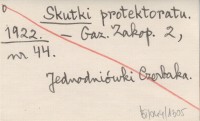 Skutki protektoratu.
1922. – Gaz. Zakop. 2,
nr 44.
Jednodniówki Czerbaka.